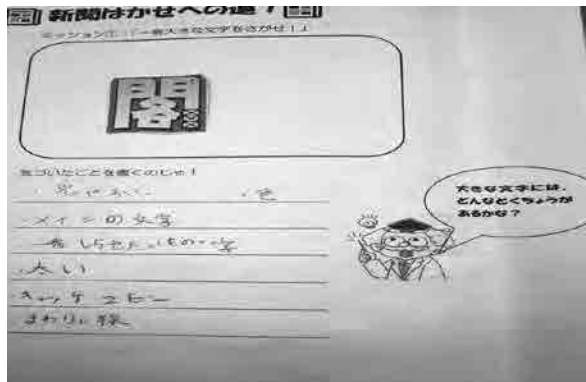 新聞はかせへの道！
ミッション①「一番大きな文字をさがせ！」
閣
気づいたことを書くのじゃ！
・色
・メインの文字
・太い
・キャッチコピー
まわりに線
大きな文字には、
どんなとくちょうが
あるかな？